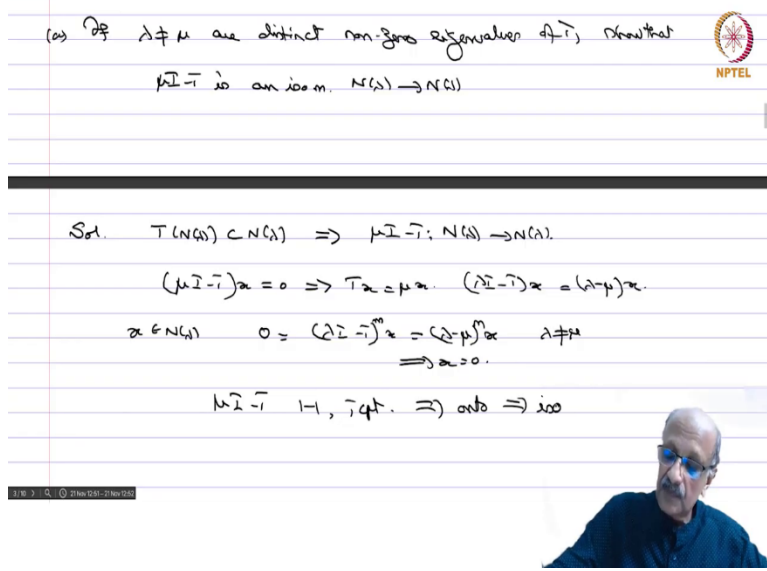 (a) If λ ≠ μ are distinct non-zero eigenvalues of T, show that
μI-T is an isom. N(λ) → N(λ)
NPTEL
Sol. T(N(λ)) ⊂ N(λ) ⇒ μI-T: N(λ) → N(λ).
(μI-T)x = 0 ⇒ Tx = μx. (λI-T)x = (λ-μ)x.
x ∈ N(λ) 0 = (λI-T)^m x = (λ-μ)^m x λ≠μ
⇒ x=0.
μI-T 1-1, T cpt. ⇒ onto ⇒ iso
3/10 21 Nov 12:51 - 21 Nov 12:52